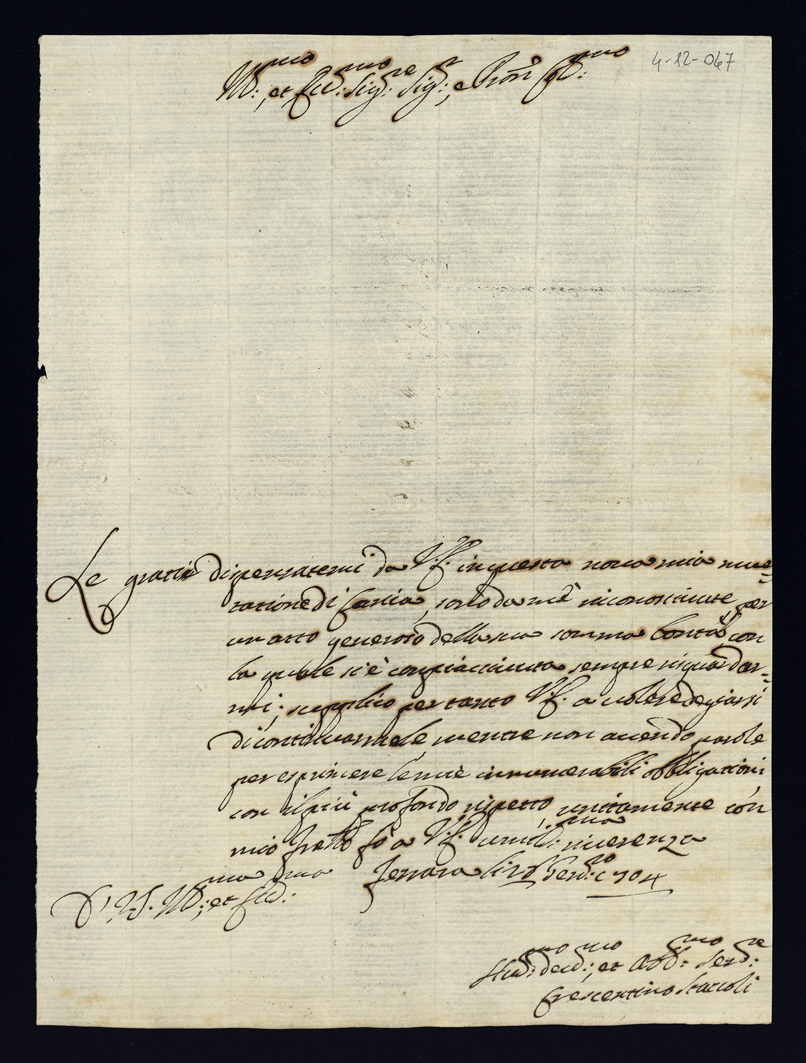 4-12-047
Ill:mo, et Ecc:mo Sig:re Sig:r, e Pron Col:mo
Le gratie dispensatemi da V.E. in questa nova mia mu=
tatione di Carica, sono da mè riconosciute per
un atto generoso della sua somma bontà con
la quale s'è compiacciuta sempre riguardar=
mi; supplico per tanto V.E. a volere degnarsi
di continuarmele mentre non avendo parole
per esprimere le mie innumerabili obbligationi
con il più profondo rispetto unitamente con
mio frello fò a V.E. umil:ma riverenza
Ferrara li 704
D' V.S. Ill:ma, et Ecc:ma
et Obb:mo Ser:re
Crescentino Staccoli